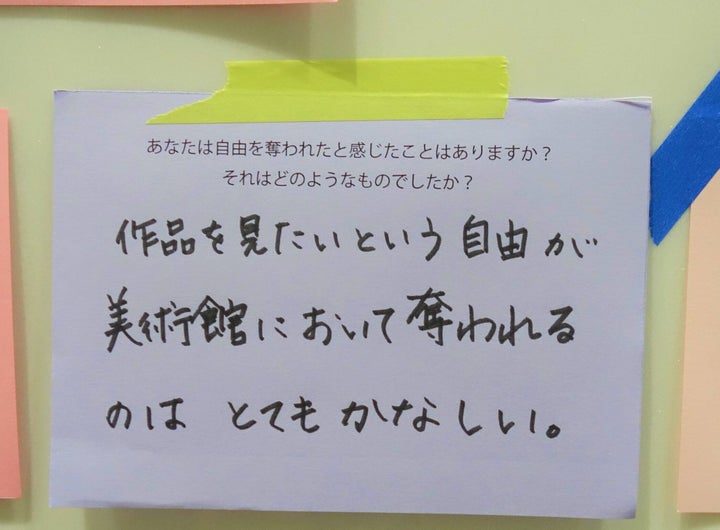 あなたは自由を奪われたと感じたことはありますか？
それはどのようなものでしたか？
作品を見たいという自由が
美術館において奪われる
のは とても かなしい。